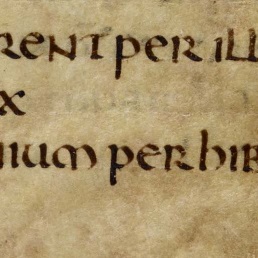 RENT per ill
x
nium perhib